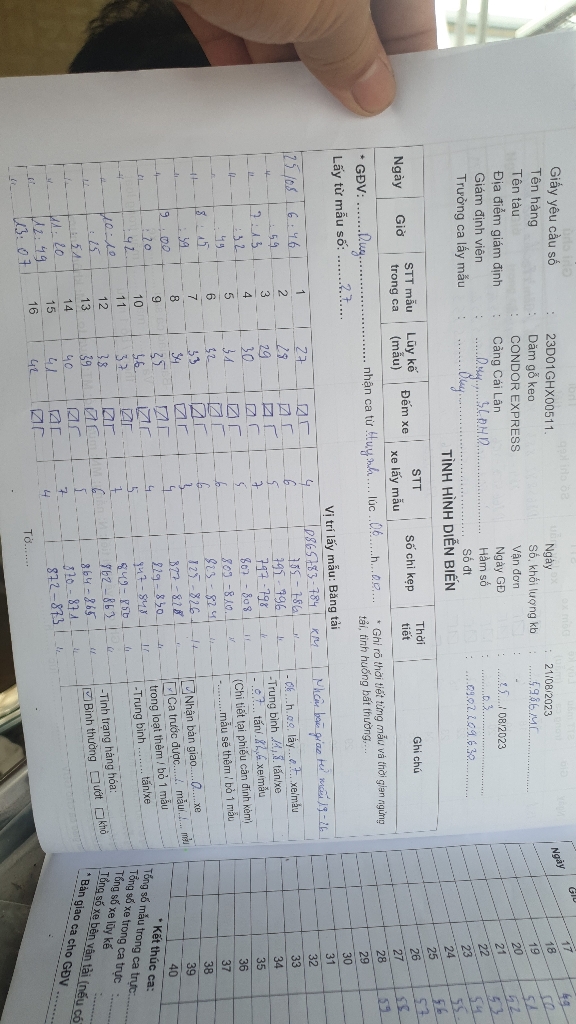 Giấy yêu cầu số : 23D01GHX00511. Ngày : 21/08/2023
Tên hàng : Dăm gỗ keo Số, khối lượng kb :
Tên tàu : CONDOR EXPRESS Vận đơn :
Địa điểm giám định : Cảng Cái Lân Ngày GĐ : 25 / 08/2023
Giám định viên : Duy Hầm số : 03
Trưởng ca lấy mẫu : Duy Số đt :
TÌNH HÌNH DIỄN BIẾN
* GĐV: Duy nhận ca từ Huỳnh lúc 06 h 00
Lấy từ mẫu số: 27
* Ghi rõ thời tiết từng mẫu và thời gian ngừng tải, tình huống bất thường,...
Vị trí lấy mẫu: Băng tải
Ngày Giờ STT mẫu trong ca Lũy kế (mẫu) Đếm xe STT xe lấy mẫu Số chì kẹp Thời tiết Ghi chú
25/08 6:46 1 27 ☑ 4
" 59 2 28 ☑ 6 785-786 "
" 7:13 3 29 ☑ 5 795-796 "
" 32 4 30 ☑ 7 797-798 "
" 49 5 31 ☑ 5 807-808 "
" 8:15 6 32 ☑ 6 809-810 "
" 39 7 33 ☑ 6 823-824 "
" 9:00 8 34 ☑ 3 825-826 "
" 20 9 35 ☑ 4 827-828 "
" 42 10 36 ☑ 4 829-830 "
" 11 37 ☑ 5 847-848 "
" 10:10 12 38 ☑ 7 849-850 "
" 15 13 39 ☑ 6 862-863 "
" 51 14 40 ☑ 5 864-865 "
" 11:20 15 41 ☑ 7 870-871 "
" 12:49 16 42 ☑ 4 872-873 "
" 13:07
06 h 00 lấy 07 xe/mẫu
-Trung bình 11,8 tấn/xe
- 07 tấn/ 82,6 xe/mẫu
(Chi tiết tại phiếu cân đính kèm)
- mẫu sẽ thêm / bỏ 1 mẫu
☑ Nhận bàn giao 0 xe
☑ Ca trước được mẫu/
trong loạt thêm / bỏ 1 mẫu
-Trung bình tấn/xe
-Tình trạng hàng hóa:
☑ Bình thường ☐ ướt ☐ khô
Tờ
Ngày
17 49
18 50
19 51
20 52
21 53
22 54
23 55
24
25 56
26 57
27 58
28 59
29
30
31
32
33
34
35
36
37
38
39
40
* Kết thúc ca:
Tổng số mẫu trong ca trực :
Tổng số xe trong ca trực :
Tổng số xe lũy kế :
Tổng số xe bên vận tải (nếu có
* Bàn giao ca cho GĐV